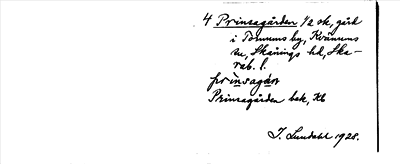 4 Prinsagården 1/2 sk, gård
i Tommums by, Kvänums
sn, Skånings hd, Ska-
rab. l.
prinsagå̇rn
Prinsagården bak, Kb
J. Lundahl 1928.